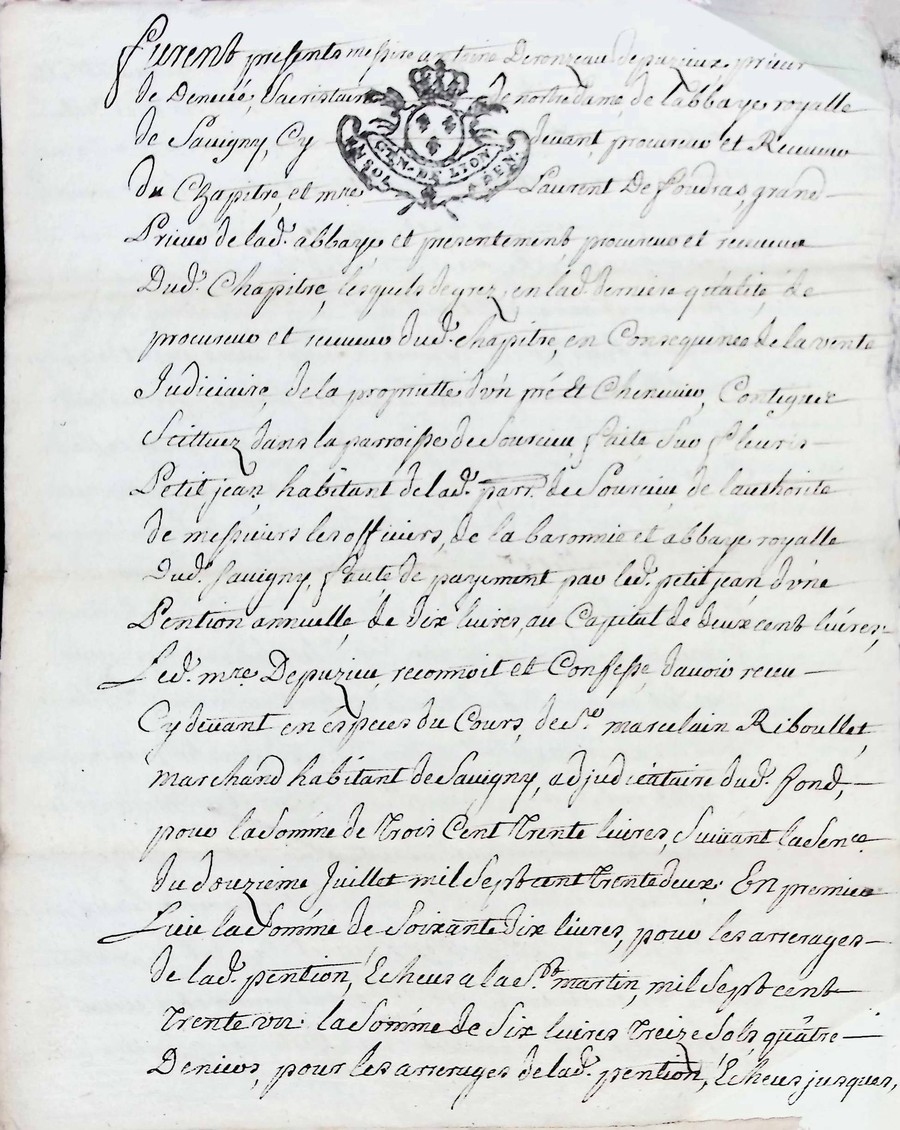 furent presents messire antoine Deronzeau depuzieux prieur
de Deneuë, Sacristain de nostre dame, de Labbaye royalle
de Savigny, Cy devant, procureur et Receveur
du Chapitre, et mre Laurent De foudras, grand
Prieur de lad. abbaye et presentement procureur et receveur
Dud. Chapitre, lesquels de grez, en lad. derniere qualité, de
procureur et receveur dud. chapitre, en Consequence de la vente
Judiciaire, de la proprietté d'un pré Et Chenevier, Contiguez
Scittuez dans la parroisse de Sourcieu, faite Sur fleuris
Petit jean, habitant de lad. parr. de Sourcieu, de l'authorité
de messieurs les officiers, de la baronnie et abbaye royalle
dud. Savigny, faute de payement par led. petit jean, d'une
Pention annuelle, de dix livres, au Capital de deux cent livres,
Led. mre Depuzieu, reconnoit et Confesse, d'avoir receu
Cy devant en espèces du Cours, de Sr. marcelain Riboullet,
marchand habitant de Savigny, adjudicataire dud. fond,
pour la Somme de Trois Cent Trente livres, Suivant la Sence
du douzieme Juillet mil Sept cent Trente deux. En premier
Lieu la Somme de Soixante dix livres, pour les arrerages
de lad. pention, Echeus a la St. martin, mil Sept cent
Trente un. la Somme de Six livres Treize Sols quâtre
Deniers, pour les arrerages de lad. pention, Echeus jusques,
GEN. DE LION